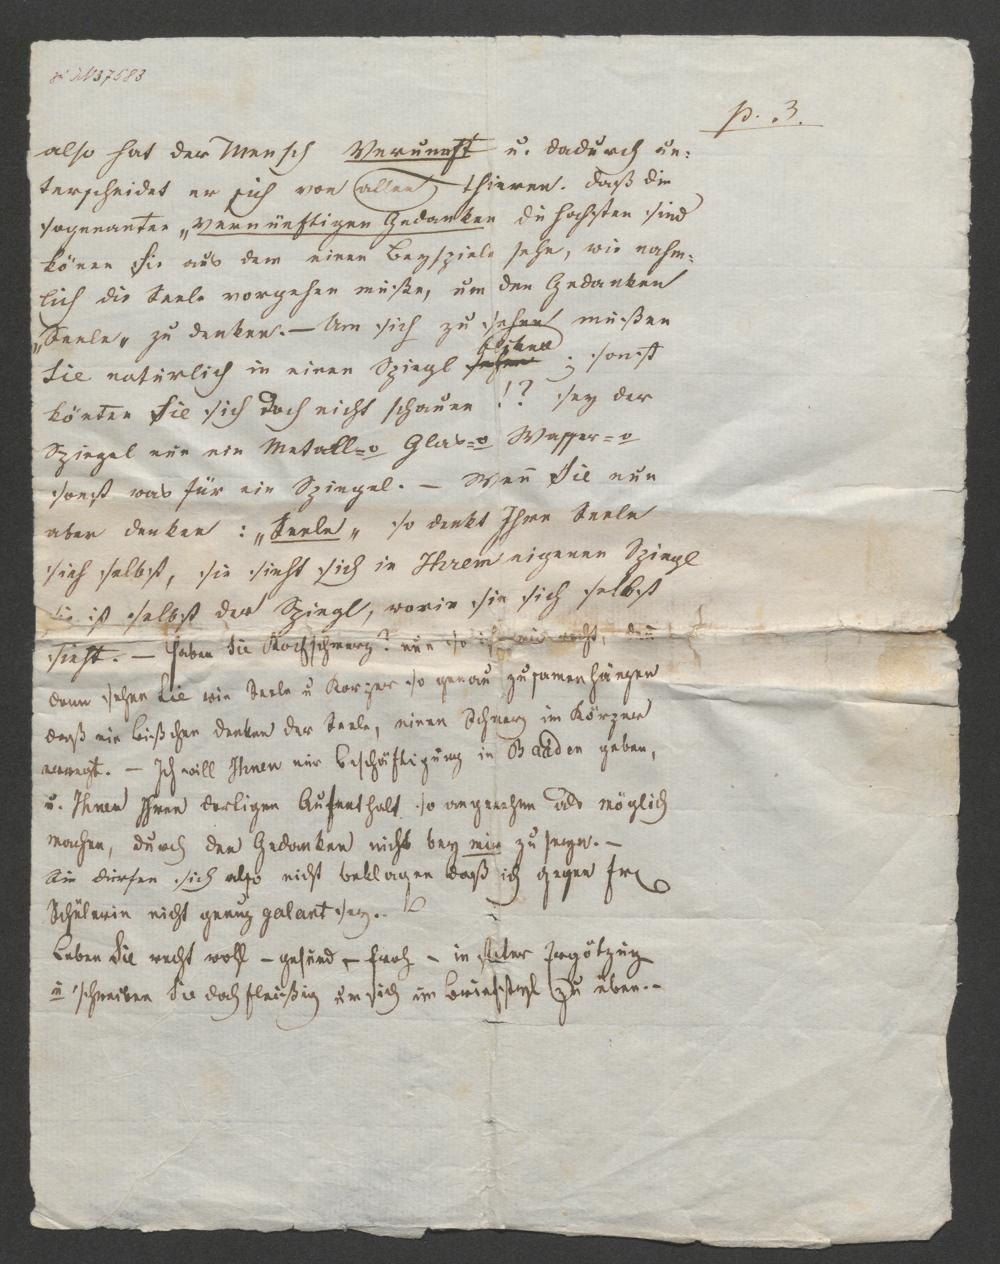 N 37583
p. 3.
also hat der Mensch Vernunft u. dadurch un:
terscheidet er sich von allen thieren. daß die
sogenanten „vernünftigen Gedanken die höchsten sind
könen Sie aus dem einen Beyspiele sehn, wie nahm:
lich die Seele vorgehen müße, um den Gedanken
„Seele„ zu denken. — Um sich zu sehen müßen
Sie natürlich in einen Spiegl sehen ; sonst
könten Sie sich doch nicht schauen !? sey der
Spiegel nun ein Metall=o Glas=o Wasser=o
sonst was für ein Spiegel. — Wen̄ Sie nun
aber denken : „Seele„ so denkt Ihre Seele
sich selbst, sie sieht sich in Ihrem eigenen Spiegl
Sie ist selbst der Spiegl, worin sie sich selbst
sieht. — Haben Sie Kopfschmerz? nun so ist mir recht, den̄
dann sehen Sie wie Seele u Körper so genau zusamenhängen
daß ein bißchen denken der Seele, einen Schmerz im Körper
erregt. — Ich will Ihnen nur Beschäftigung in Baaden geben,
u. Ihnen Ihren dortigen Aufenthalt so angenehm als möglich
machen, durch den Gedanken nicht bey mir zu seyn. —
Sie dürfen sich also nicht beklagen daß ich gegen Ihre
Schülerin nicht genug galant sey.
Leben Sie recht wohl – gesund – froh – in steter Ergötzung
u schreiben Sie doch fleißig um sich im Briefstyl zu üben. –